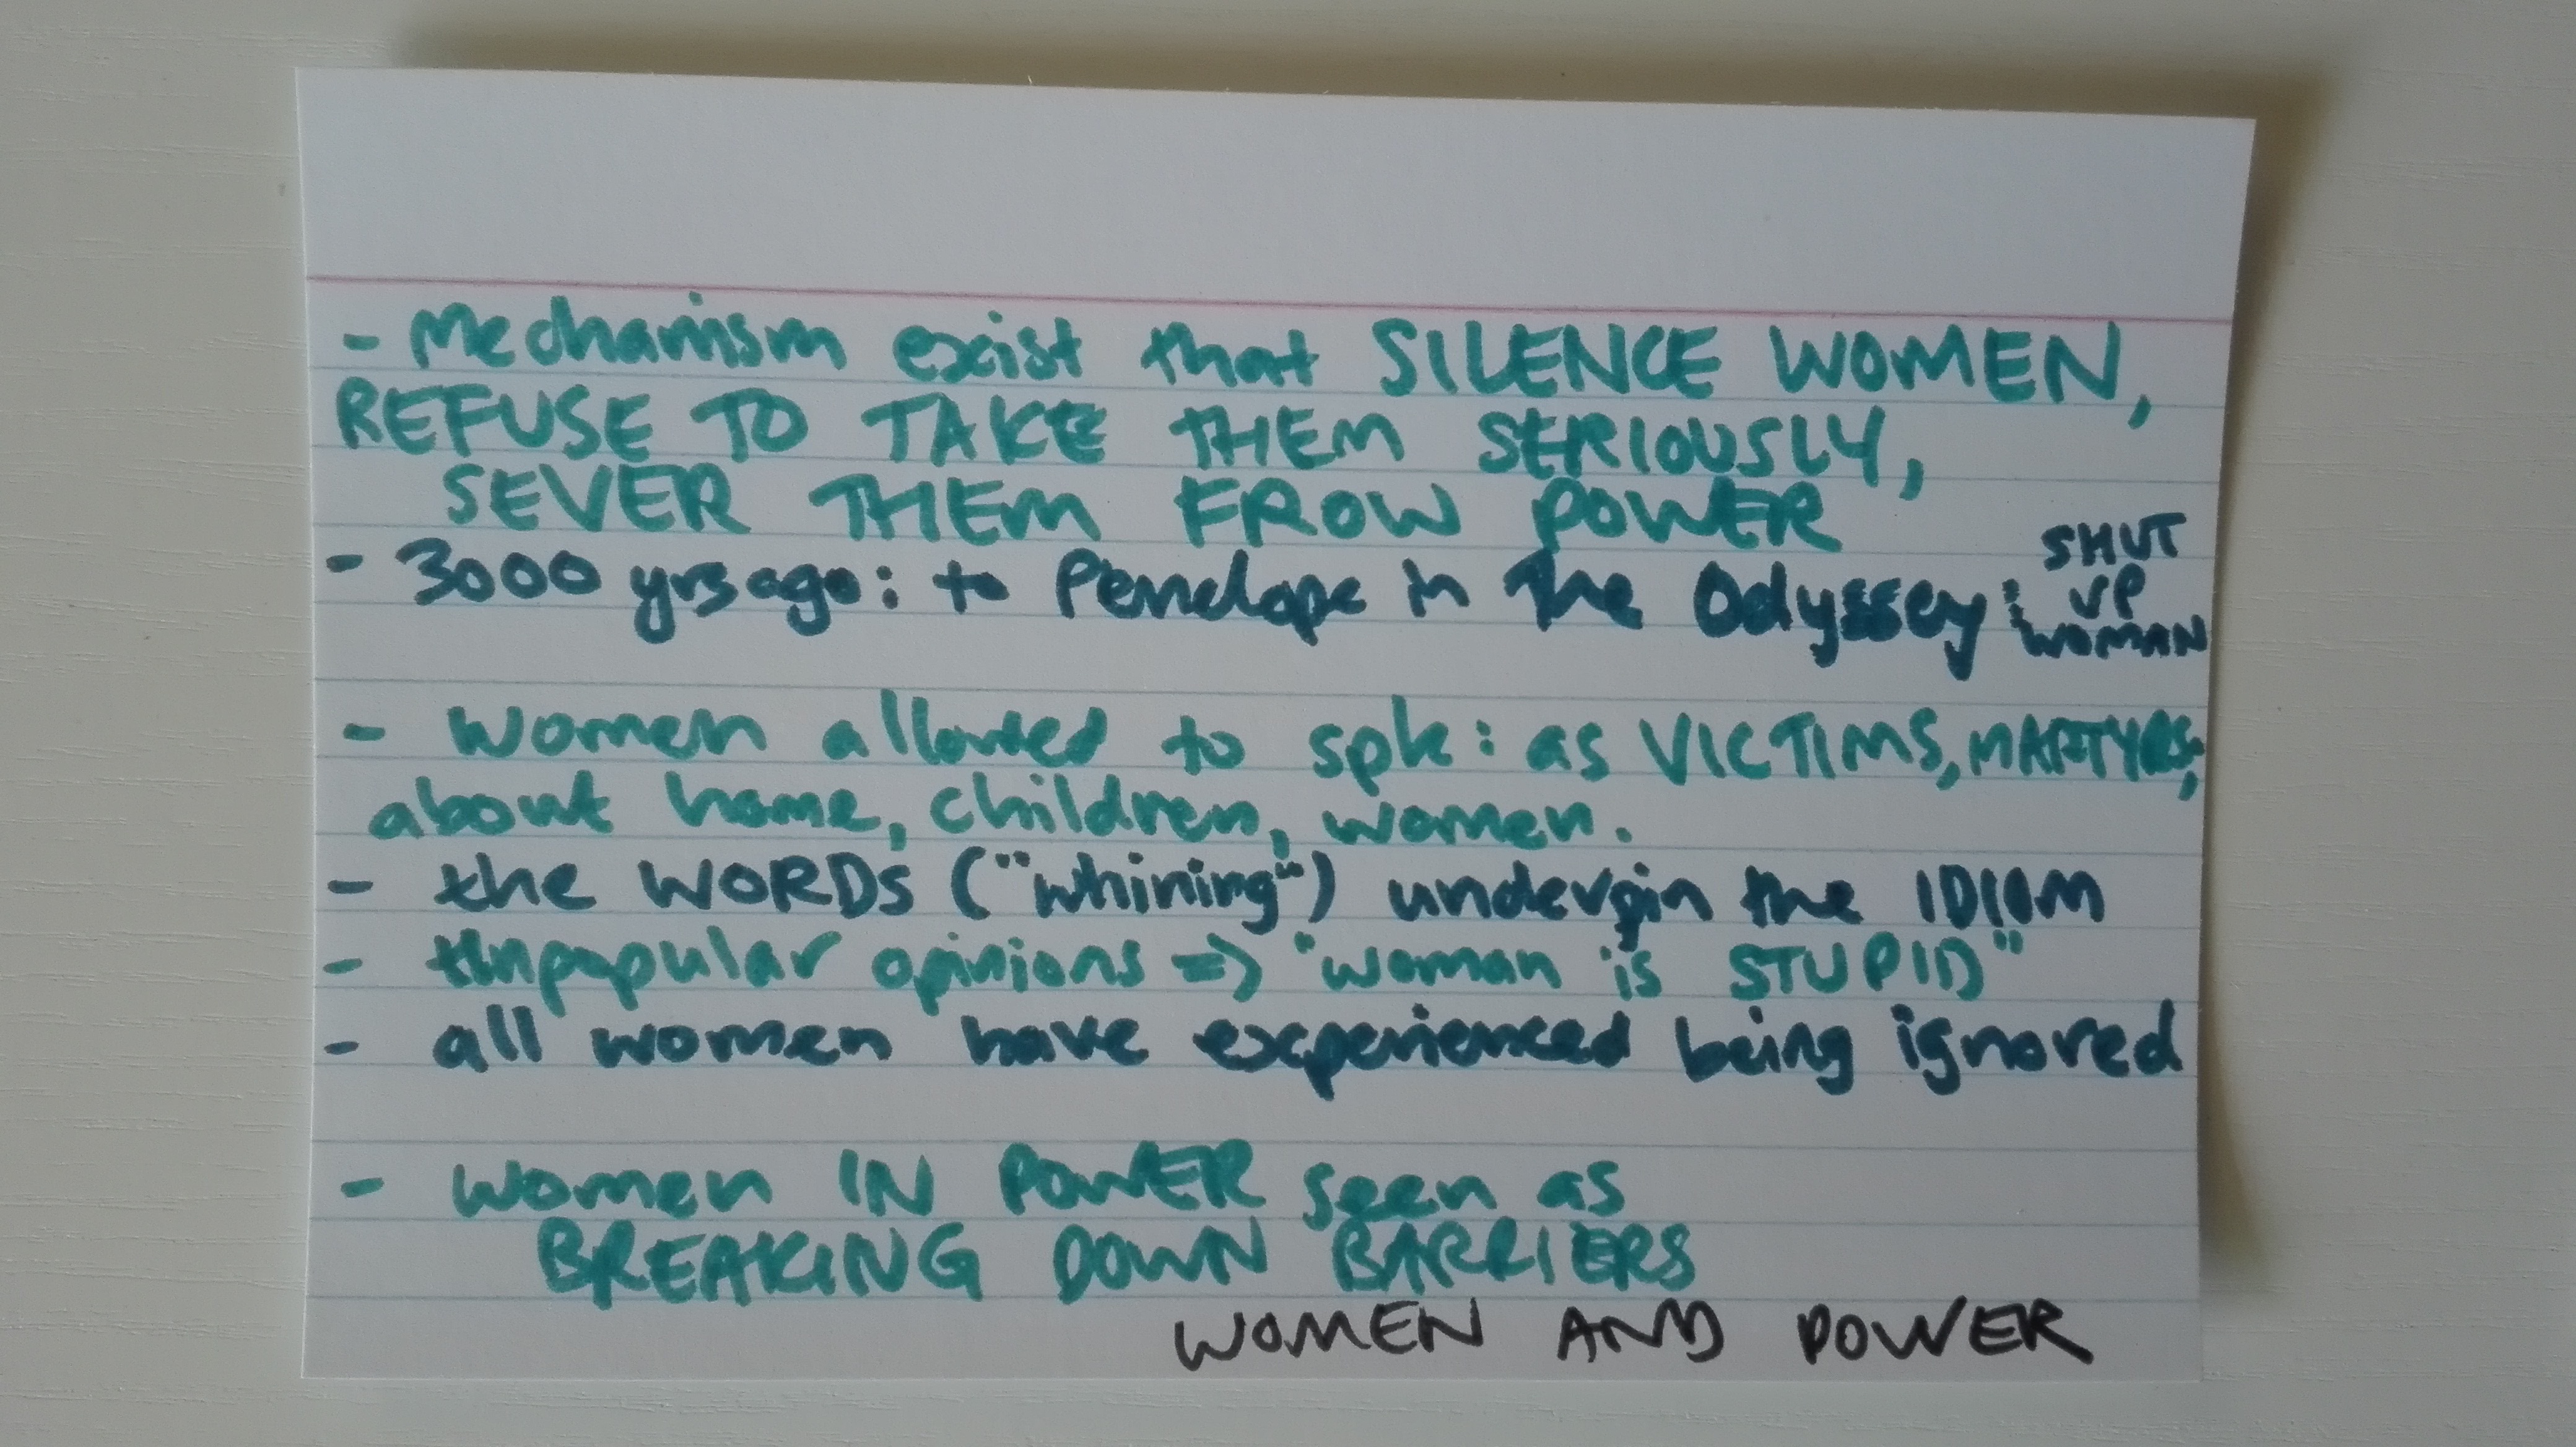 - Mechanism exist that SILENCE WOMEN,
REFUSE TO TAKE THEM SERIOUSLY,
SEVER THEM FROW POWER
- 3000 yrs ago: to Penelope in The Odyssey: SHUT
UP
WOMAN
- women allowed to spk: as VICTIMS, MARTYRS,
about home, children, women.
- the WORDS ("whining") underpin the IDIOM
- Unpopular opinions => "woman is STUPID"
- all women have experienced being ignored
- women IN POWER seen as
BREAKING DOWN BARRIERS
WOMEN AND POWER